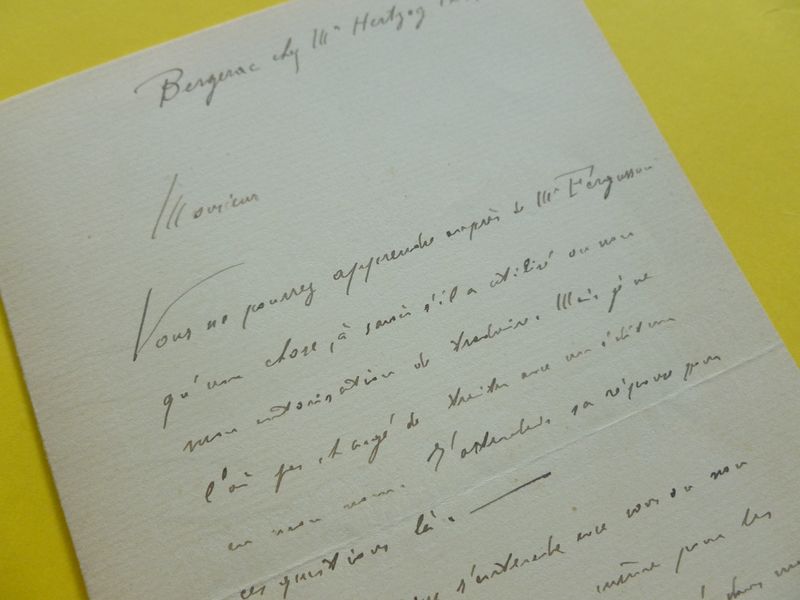 Bergerac chez Mr Hertzog
Monsieur
Vous ne pourrez apprendre auprès de Mr Fergusson
qu'une chose, à savoir s'il a utilisé ou non
mon autorisation de traduire. Mais je ne
l'ai pas chargé de traiter avec un éditeur
en mon nom. J'attendrai sa réponse pour
ces questions là. —
s'entende avec vous ou non
même pour les
dans